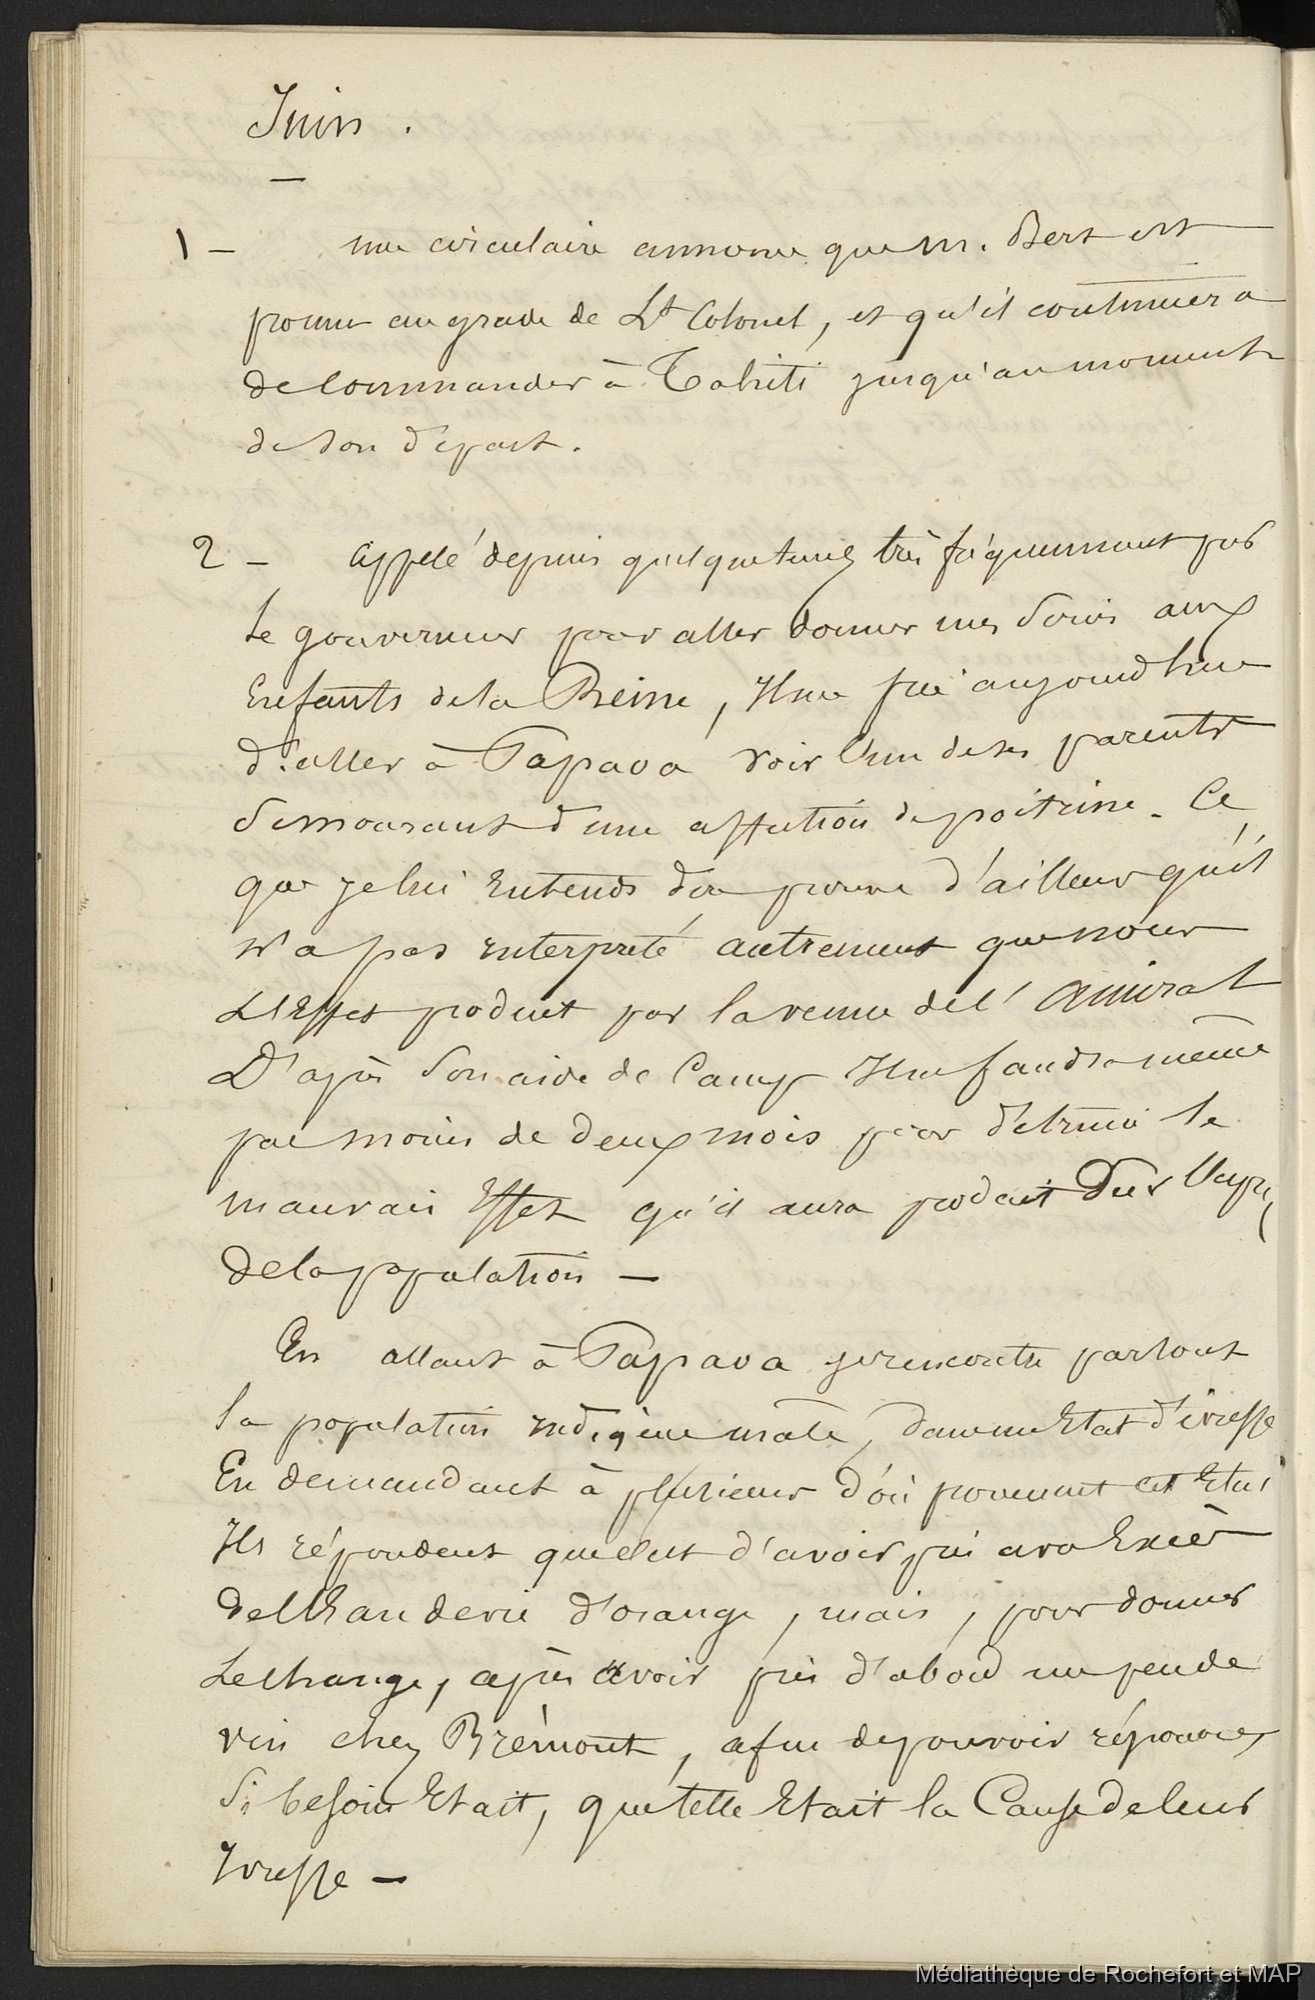 Juin .
1 – une circulaire annonce que M. Bert est
promu au grade de Lt Colonel, et qu'il continuera
de commander à Tahiti jusqu'au moment
de son départ.
2 – Appelé depuis quelque tems très fréquemment par
le gouverneur pour aller donner mes soins aux
Enfants de la Reine, Il me prie aujourd'hui
d'aller à Papaoa voir l'un de ses parents
se mourant d'une affection de poitrine. Ce
que je lui Entends dire prouve d'ailleurs qu'il
n'a pas interprété autrement que nous
L'Effet produit par la venue de l'Amiral
D'après son aide de Camp Il ne faudra même
pas moins de deux mois pour détruire le
mauvais Effet qu'il aura produit sur l'Esprit
de la population –
En allant à Papaoa je rencontre partout
la population indigène mâle, dans un Etat d'ivresse
En demandant à plusieurs d'où provenait cet Etat
Ils répondent que c'est d'avoir pris avec Excès
de l'Eau de vie d'orange, mais, pour donner
Le change, après avoir pris d'abord un peu de
vin chez Brémont, afin de pouvoir répondre,
Si besoin Etait, que telle Etait la Cause de leur
Ivresse –
Médiathèque de Rochefort et MAP